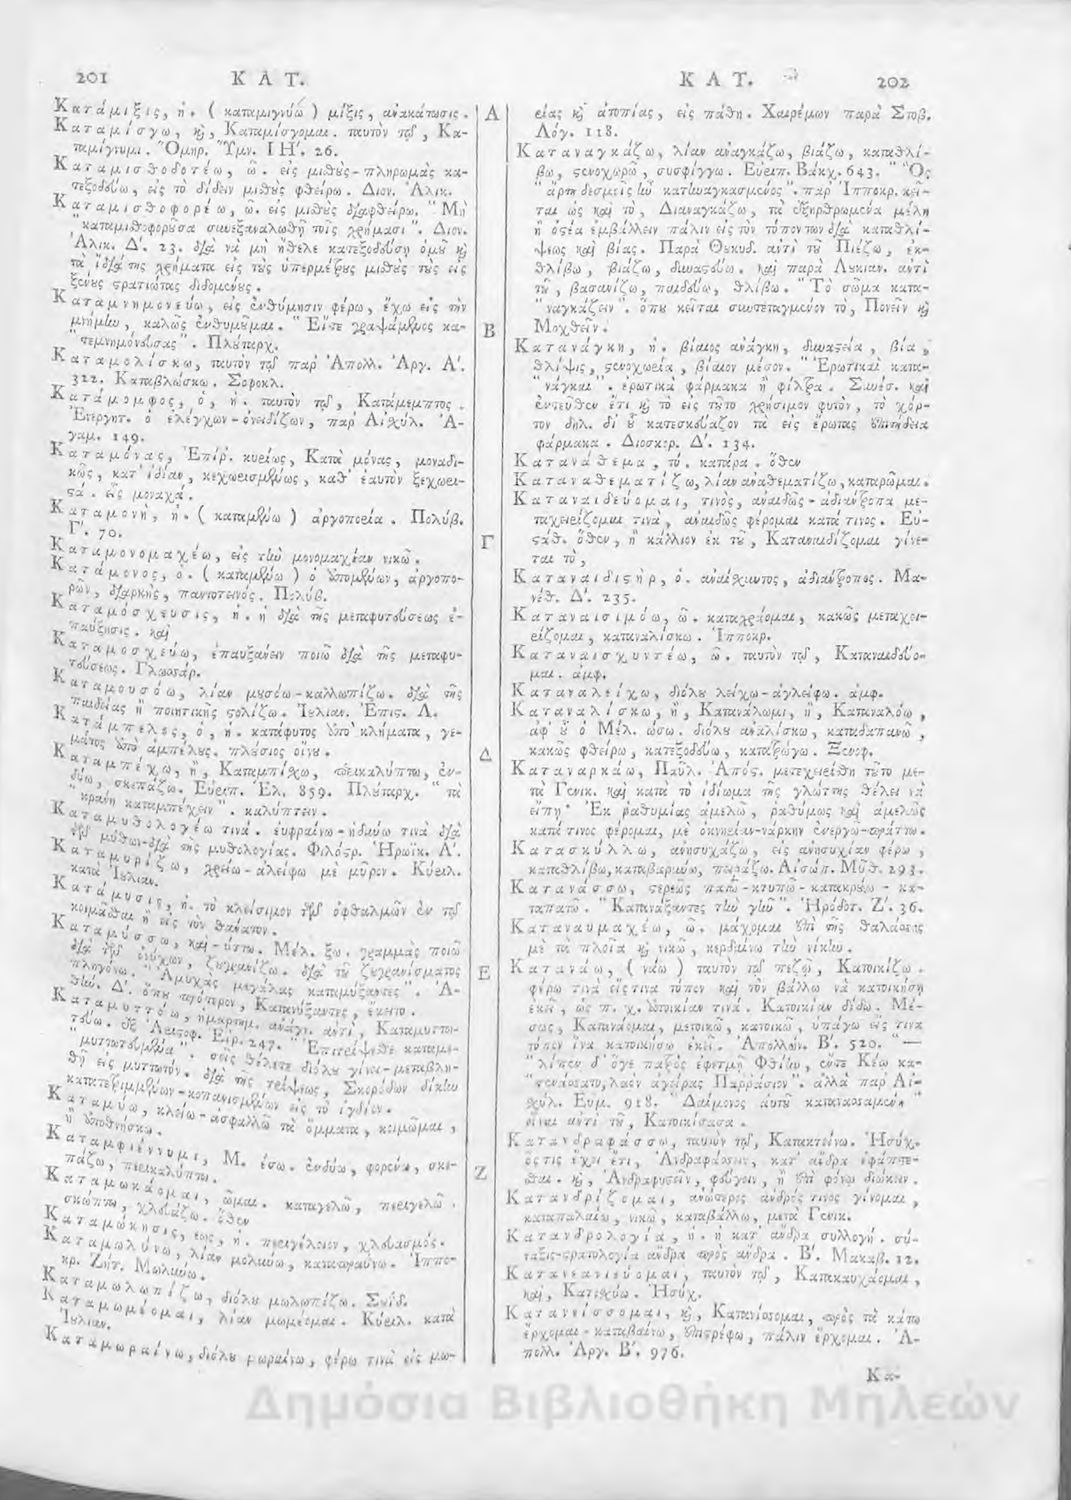 201 Κ Α Τ.
Κατάμιξις, ἡ. ( καταμιγνύω ) μίξις, ἀνακάτωσις.
Καταμίσγω, ϗ, Καταμίσγομαι. ταυτὸν τῷ, Κα-
ταμίγνυμι. Ὅμηρ. Ὕμν. ΙΗ΄. 26.
Καταμισθοδοτέω, ῶ. εἰς μισθὺς-πληρωμὰς κα-
τεξοδεύω, εἰς τὸ δίδειν μισθὺς φθείρω. Διον. Ἁλικ.
Καταμισθοφορέω, ῶ. εἰς μισθὺς διαφθείρω. " Μὴ
" καταμισθοφορῦσα συνεξαναλωθῇ τοῖς χρήμασι ". Διον.
Ἁλικ. Δ΄. 23. διὰ νὰ μὴ ἤθελε κατεξοδευθῇ ὁμῦ ϗ
τὰ ἴδιά της χρήματα εἰς τὺς ὑπερμέτρυς μισθὺς τὺς εἰς
ξένυς στρατιώτας διδομένυς.
Καταμνημονεύω, εἰς ἐνθύμησιν φέρω, ἔχω εἰς τὴν
μνήμην, καλῶς ἐνθυμῦμαι. " Εἴτε γραψάμενος κα-
" τεμνημόνευσας ". Πλύταρχ.
Καταμολίσκω, ταυτὸν τῷ παρ' Ἀπολλ. Ἀργ. Α΄.
322. Καταβλώσκω. Σοφοκλ.
Κατάμομφος, ὁ, ἡ. ταυτὸν τῷ, Κατάμεμπτος.
Ἐνεργητ. ὁ ἐλέγχων-ὀνειδίζων, παρ' Αἰσχύλ. Ἀ-
γαμ. 149.
Καταμόνας, Ἐπίρ. κυρίως, Κατὰ μόνας, μοναδι-
κῶς, κατ' ἰδίαν, κεχωρισμένως, καθ' ἑαυτὸν ξεχωρι-
στά. εἰς μοναχά.
Καταμονὴ, ἡ. ( καταμένω ) ἀργοπορία. Πολύβ.
Γ΄. 70.
Καταμονομαχέω, εἰς τὴν μονομαχίαν νικῶ.
Κατάμονος, ὁ. ( καταμένω ) ὁ ὑπομένων, ἀργοπο-
ρῶν, διαρκὴς, παντοτεινός. Πολύβ.
Καταμόσχευσις, ἡ. ἡ διὰ τῆς μεταφυτεύσεως ἐ-
παύξησις. ϗ
Καταμοσχεύω, ἐπαυξάνειν ποιῶ διὰ τῆς μεταφυ-
τεύσεως. Γλωσσάρ.
Καταμουσόω, λίαν μυσόω-καλλωπίζω. διὰ τῆς
παιδείας ἢ ποιητικῆς στολίζω. Ἰυλιαν. Ἐπις. Λ.
Κατάμπελος, ὁ, ἡ. κατάφυτος ὑπὸ κλήματα, γε-
μάτος ὑπὸ ἀμπέλυς. πλύσιος οἴνυ.
Καταμπέχω, ἢ, Καταμπίσχω, περικαλύπτω, ἐν-
δύω, σκεπάζω. Εὐριπ. Ἑλ. 859. Πλύταρχ. " τὰ
" κρανῆ καταμπέχειν ". καλύπτειν.
Καταμυθολογέω τινά. εὐφραίνω-ἡδύνω τινὰ διὰ
τῶν μύθων-διὰ τῆς μυθολογίας. Φιλόστρ. Ἡρωϊκ. Λ΄.
Καταμυρίζω, χρίω-ἀλείφω μὲ μῦρον. Κύριλ.
κατὰ Ἰυλιαν.
Κατάμυσις, ἡ. τὸ κλείσιμον τῶν ὀφθαλμῶν ἐν τῷ
κοιμᾶσθαι ἢ εἰς τὸν θάνατον.
Καταμύσσω, ϗ -ύττω. Μέλ. ξω. γραμμὰς ποιῶ
διὰ τῶν ὀνύχων, ζυγρανίζω. διὰ τῦ ζυγρανίσματος
πληγόνω. " Ἀμυχὰς μεγάλας καταμύξαντες ". Ἀ-
θήν. Δ΄. ὅπυ πρότερον, Κατανύξαντες, ἔκειτο.
Καταμυττόω, ἡμαρτημ. ἀνάγν. ἀντὶ, Καταμυττω-
τεύω. ἐξ Ἀριστοφ. Εἰρ. 247. " Ἐπιτρίψεσθε καταμε-
" μυττωτευμένα ". σεῖς θέλετε διόλυ γίνει-μεταβλη-
θῆ εἰς μυττωτὸν. διὰ τῆς τρίψεως, Σκορόδων δίκην
κατατετριμμένων-κοπανισμένων εἰς τὸ ἰγδίον.
Καταμύω, κλείω-ἀσφαλῶ τὰ ὄμματα, κοιμῶμαι,
ἢ ὑποθνήσκω.
Καταμφιέννυμι, Μ. έσω. ἐνδύω, φορένω, σκε-
πάζω, περικαλύπτω.
Καταμωκάομαι, ῶμαι. καταγελῶ, περιγελῶ.
σκώπτω, χλευάζω. ὅθεν
Καταμώκησις, εως, ἡ. περιγέλοιον, χλευασμός.
Καταμωλύνω, λίαν μολυύω, καταπραΰνω. Ἱππο-
κρ. Ζήτ. Μωλύνω.
Καταμωλωπίζω, διόλυ μωλωπίζω. Σουΐδ.
Καταμωμέομαι, λίαν μωμέομαι. Κύριλ. κατὰ
Ἰυλιαν.
Καταμωραίνω, διόλυ μωραίνω, φέρω τινὰ εἰς μω-
Α
Β
Γ
Δ
Ε
Ζ
Κ Α Τ. 202
ρίας ϗ ἀτοπίας, εἰς πάθη. Χαιρέμων παρὰ Στοβ.
Λόγ. 118.
Καταναγκάζω, λίαν ἀναγκάζω, βιάζω, καταθλί-
βω, στενοχωρῶ, συσφίγγω. Εὐριπ. Βάκχ. 643. " Ὃς
" ἄρτι δεσμοῖς ἦν κατηναγκασμένος ". παρ' Ἱπποκρ. κεῖ-
ται ὡς ϗ τὸ, Διαναγκάζω, τὰ ἐξηρθρωμένα μέλη
ἢ ὀστέα ἐμβάλλειν πάλιν εἰς τὸν τόπον των διὰ καταθλί-
ψεως ϗ βίας. Παρὰ Θυκυδ. ἀντὶ τῦ Πιέζω, ἐκ-
θλίβω, βιάζω, δυναστεύω. ϗ παρὰ Λυκιαν. ἀντὶ
τῦ, βασανίζω, παιδεύω, θλίβω. " Τὸ σῶμα κατα-
" ναγκάζειν ". ὅπυ κεῖται συντεταγμένον τὸ, Πονεῖν ϗ
Μοχθεῖν.
Κατανάγκη, ἡ. βίαιος ἀνάγκη, δυναστεία, βία,
θλίψις, στενοχωρία, βίαιον μέσον. " Ἐρωτικαὶ κατα-
" νάγκαι ". ἐρωτικὰ φάρμακα ἢ φίλτρα. Συνέσ. ϗ
ἐντεῦθεν ἔτι ϗ τὸ εἰς τῦτο χρήσιμον φυτὸν, τὸ χόρ-
τον δηλ. δι' ῦ κατεσκεύαζον τὰ εἰς ἔρωτας ἐπιτήδεια
φάρμακα. Διοσκορ. Δ΄. 134.
Κατανάθεμα, τό. κατάρα. ὅθεν
Καταναθεματίζω, λίαν ἀναθεματίζω, καταρῶμαι.
Καταναιδεύομαι, τινὸς, ἀναιδῶς-ἀδιάντροπα με-
ταχειρίζομαι τινα, ἀναιδῶς φέρομαι κατά τινος. Εὐ-
στάθ. ὅθεν, ἢ κάλλιον ἐκ τῦ, Καταναιδίζομαι γίνε-
ται τὸ,
Καταναιδιστὴρ, ὁ. ἀναίσχυντος, ἀδιάντροπος. Μα-
νέθ. Δ΄. 235.
Καταναισιμόω, ῶ. καταχράομαι, κακῶς μεταχει-
ρίζομαι, καταναλίσκω. Ἱπποκρ.
Καταναισχυντέω, ῶ. ταυτὸν τῷ, Καταναιδεύο-
μαι. ἀμφ.
Καταναλείχω, διόλυ λείχω-ἀγλείφω. ἀμφ.
Καταναλίσκω, ἢ, Κατανάλωμι, ἢ, Καταναλόω,
ἀφ' ῦ ὁ Μέλ. ώσω. διόλυ ἀναλίσκω, καταδαπανῶ,
κακῶς φθείρω, κατεξοδεύω, κατατρώγω. Ξενοφ.
Καταναρκάω, Παῦλ. Ἀπός. μετεχειρίσθη τῦτο με-
τὰ Γενικ. ϗ κατὰ τὸ ἰδίωμα τῆς γλώττης θέλει νὰ
εἴπῃ· Ἐκ ῥαθυμίας ἀμελῶ, ῥαθύμως ϗ ἀμελῶς
κατά τινος φέρομαι, μὲ ὀκνηρίαν-νάρκην ἐνεργῶ-πράττω.
Κατασκύλλω, ἀνησυχάζω, εἰς ἀνησυχίαν φέρω,
καταθλίβω, καταβαρύνω, πειράζω. Αἴσωπ. Μῦθ. 293.
Κατανάσσω, στερεῶς πατῶ-κτυπῶ-κατακρύω - κα-
ταπατῶ. " Κατανάξαντες τὴν γῆν ". Ἡρόδοτ. Ζ΄. 36.
Καταναυμαχέω, ῶ. μάχομαι ἐπὶ τῆς θαλάσσης
μὲ τὰ πλοῖα ϗ νικῶ, κερδαίνω τὴν νίκην.
Κατανάω, ( νάω ) ταυτὸν τῷ πεζῷ, Κατοικίζω.
φέρω τινὰ εἴς τινα τόπον ϗ τὸν βάλλω νὰ κατοικήσῃ
ἐκεῖ, ὡς π. χ. ἀποικίαν τινά. Κατοικίαν δίδω. Μέ-
σως, Κατανάομαι, μετοικῶ, κατοικῶ, ὑπάγω εἴς τινα
τόπον ἵνα κατοικήσω ἐκεῖ. Ἀπολλών. Β΄. 520. " —
" λίπεν δ' ὅγε πατρὸς ἐφετμῇ Φθίην, ἔντε Κέω κα-
" τενάσσατο, λαὸν ἀγείρας Παρράσιον ". ἀλλὰ παρ' Αἰ-
σχύλ. Εὐμ. 918. " Δαίμονος αὐτῦ κατανασσαμένη "
εἶναι ἀντὶ τῦ, Κατοικίσασα.
Κατανδραφάσσω, ταυτὸν τῷ, Κατακτείνω. Ἡσύχ.
ὅστις ἔχει ἔτι, Ἀνδραφάσσειν, κατ' ἄνδρα ἐφάπτε-
σθαι. ϗ, Ἀνδραφυσεῖν, φεύγειν, ἢ ἐπὶ φόνῳ διώκειν.
Κατανδρίζομαι, ἀνώτερος ἀνδρός τινος γίνομαι,
καταπαλαίω, νικῶ, καταβάλλω, μετὰ Γενικ.
Κατανδρολογία, ἡ. ἡ κατ' ἄνδρα συλλογή. σύ-
ταξις-στρατολογία ἄνδρα πρὸς ἄνδρα. Β΄. Μακαβ. 12.
Κατανεανιεύομαι, ταυτὸν τῷ, Κατακαυχάομαι,
ϗ, Κατισχύω. Ἡσύχ.
Κατανείσσομαι, ϗ, Κατανίσσομαι, πρὸς τὰ κάτω
ἔρχομαι-καταβαίνω, ἐπιστρέφω, πάλιν ἔρχομαι. Ἀ-
πολλ. Ἀργ. Β΄. 976.
Κα-
Δημόσια Βιβλιοθήκη Μηλεών